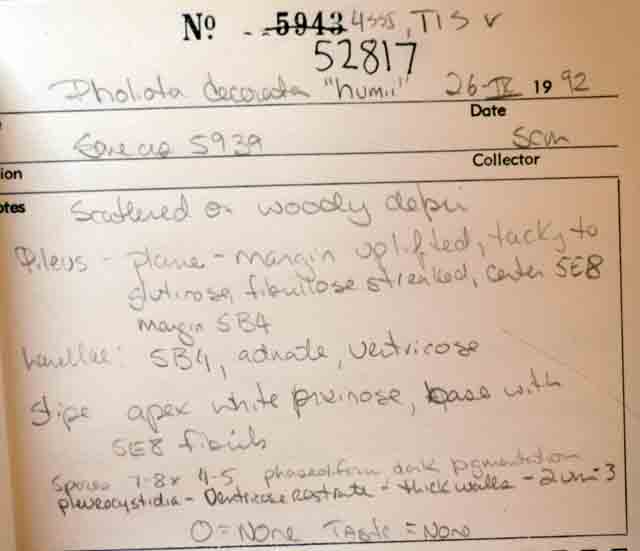 Nº 5943 4sss, TIS v
52817
Pholiota decorata "humii" 26-IX 19 92
Date
5939 Scm
ion Collector
otes Scattered on woody debri
Pileus - plane - margin uplifted, tacky to
glutinose, fibrillose streaked, center 5E8
margin 5B4
Lamellae: 5B4, adnate, ventricose
Stipe apex white pruinose, base with
5E8 fibrils
Spores 7-8 x 4-5 phaseoliform dark pigmentation
pleurocystidia - Ventricose rostrate - thick walls - 2um-3
O = None Taste = None